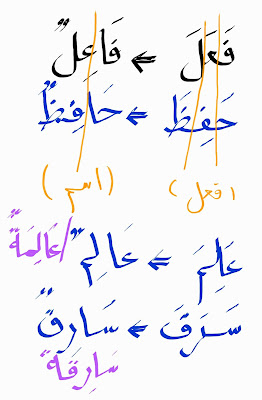 فَعَلَ ⇐ فَاعِلٌ
حَفِظَ ⇐ حَافِظٌ
(فعل) (اسم)
عَلِمَ ⇐ عَالِمٌ / عَالِمَةٌ
سَرَقَ ⇐ سَارِقٌ
سَارِقَةٌ